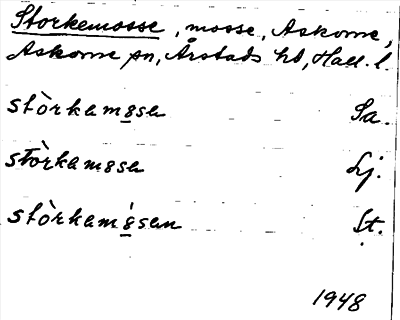 Storkemosse, mosse, Askome,
Askome sn, Årstads hd, Hall. l.
stòrkamosa Sa.
stòrkamosa Lj.
stòrkamósan St.
1948